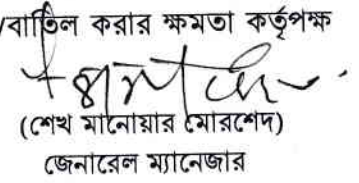 /বাতিল করার ক্ষমতা কর্তৃপক্ষ
(শেখ মানোয়ার মোরশেদ)
জেনারেল ম্যানেজার